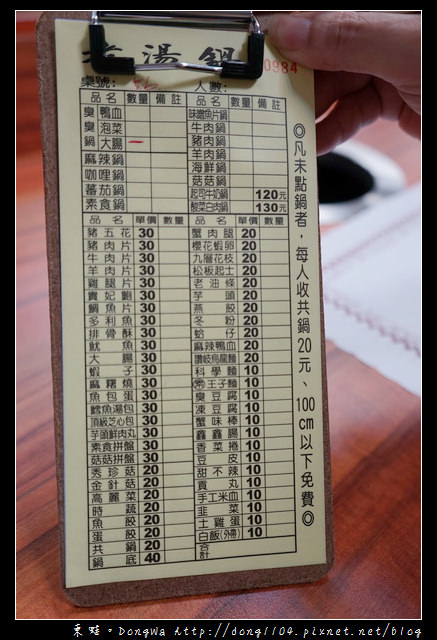 老湯鍋
0984
桌號:
人數:
品名 數量 備註 品名 數量 備註
臭 鴨血 味噌魚片鍋
臭 泡菜 牛肉鍋
鍋 大腸 豬肉鍋
羊肉鍋
麻辣鍋 海鮮鍋
咖哩鍋 菇菇鍋
蕃茄鍋 起司牛奶鍋 120元
素食鍋 酸菜白肉鍋 130元
品名 單價 數量 品名 單價 數量
豬五花 30 蟹肉腿 20
豬肉片 30 櫻花蝦卵 20
牛肉片 30 九層花枝 20
羊肉片 30 松板起士 20
雞腿片 30 老油條 20
貴妃鮑 30 芋頭 20
鯛魚片 30 燕餃 20
多利魚 30 冬粉 20
排骨酥 30 蛤仔 20
魷魚 30 麻辣鴨血 20
大腸 30 讚岐烏龍麵 20
蝦子 30 科學麵 10
麻糬燒 30 王子麵 10
魚包蛋 30 臭豆腐 10
鱈魚湯包 30 凍豆腐 10
頂級芝心包 30 蟹味棒 10
芋頭鮮肉丸 30 鑫鑫腸 10
素食拼盤 30 香菜捲 10
菇菇拼盤 30 豆皮 10
秀珍菇 20 甜不辣 10
金針菇 20 貢丸 10
高麗菜 20 手工米血 10
時蔬 20 韭菜 10
魚餃 20 土雞蛋 10
蛋餃 20 白飯(外帶) 10
共鍋 20 合計
鍋底 40
◎凡未點鍋者，每人收共鍋20元、100cm以下免費◎
東蛙。DongWa http://dong1104.pixnet.net/blog